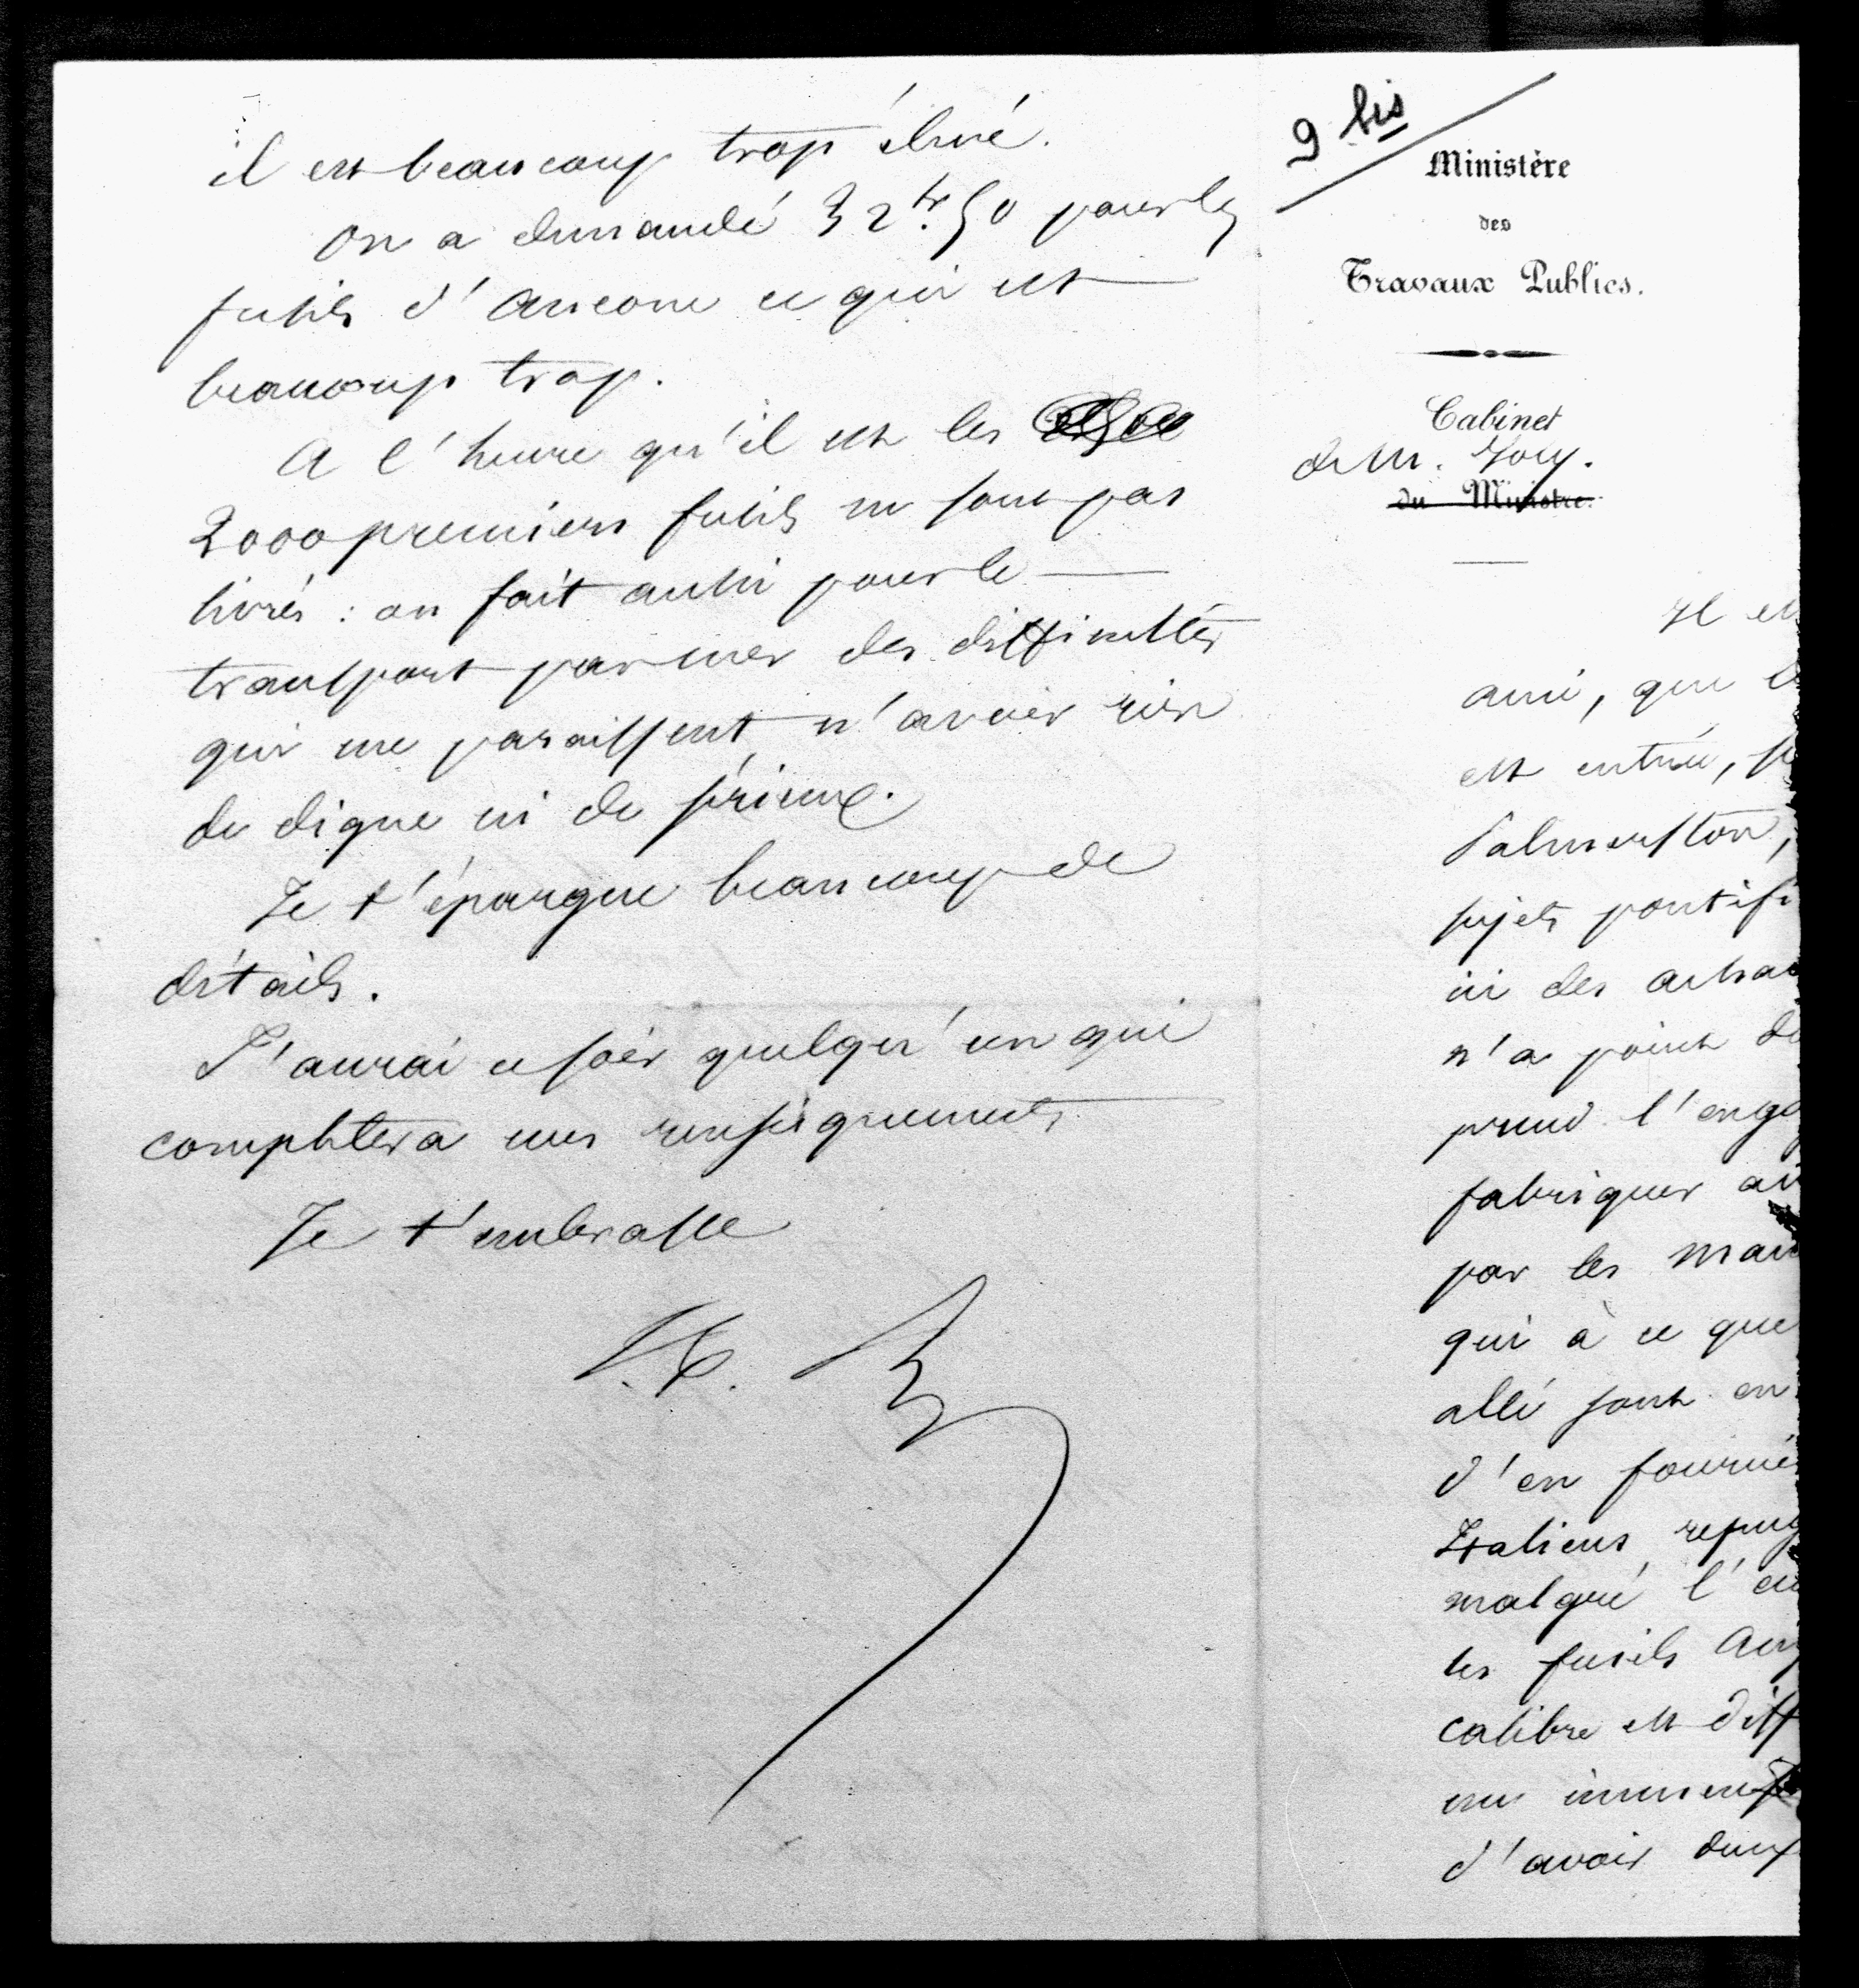 il est beaucoup trop élevé.
On a demandé 32fr.50 pour les
fusils d'Ancone ce qui est
beaucoup trop.
A l'heure qu'il est les
2000 premiers fusils ne sont pas
livrés : on fait aussi pour le
transport par mer des difficultés
qui me paraissent n'avoir rien
de digne ni de sérieux.
Je t'épargne beaucoup de
détails.
J'aurai ce soir quelqu'un qui
complètera mes renseignements
Je t'embrasse
9 bis
Ministère
des
Travaux Publics.
Cabinet
de M.
du Ministre.
Il es
ami, que l
est entrée, s
Palmerston,
sujets pontifi
ici des achat
n'a point de
prend l'enga
fabriquer
par les man
qui à ce que
allé sont en
d'en fournir
Italiens, repug
malgré l'
les fusils Ang
calibre est diff
un immense
d'avoir deux